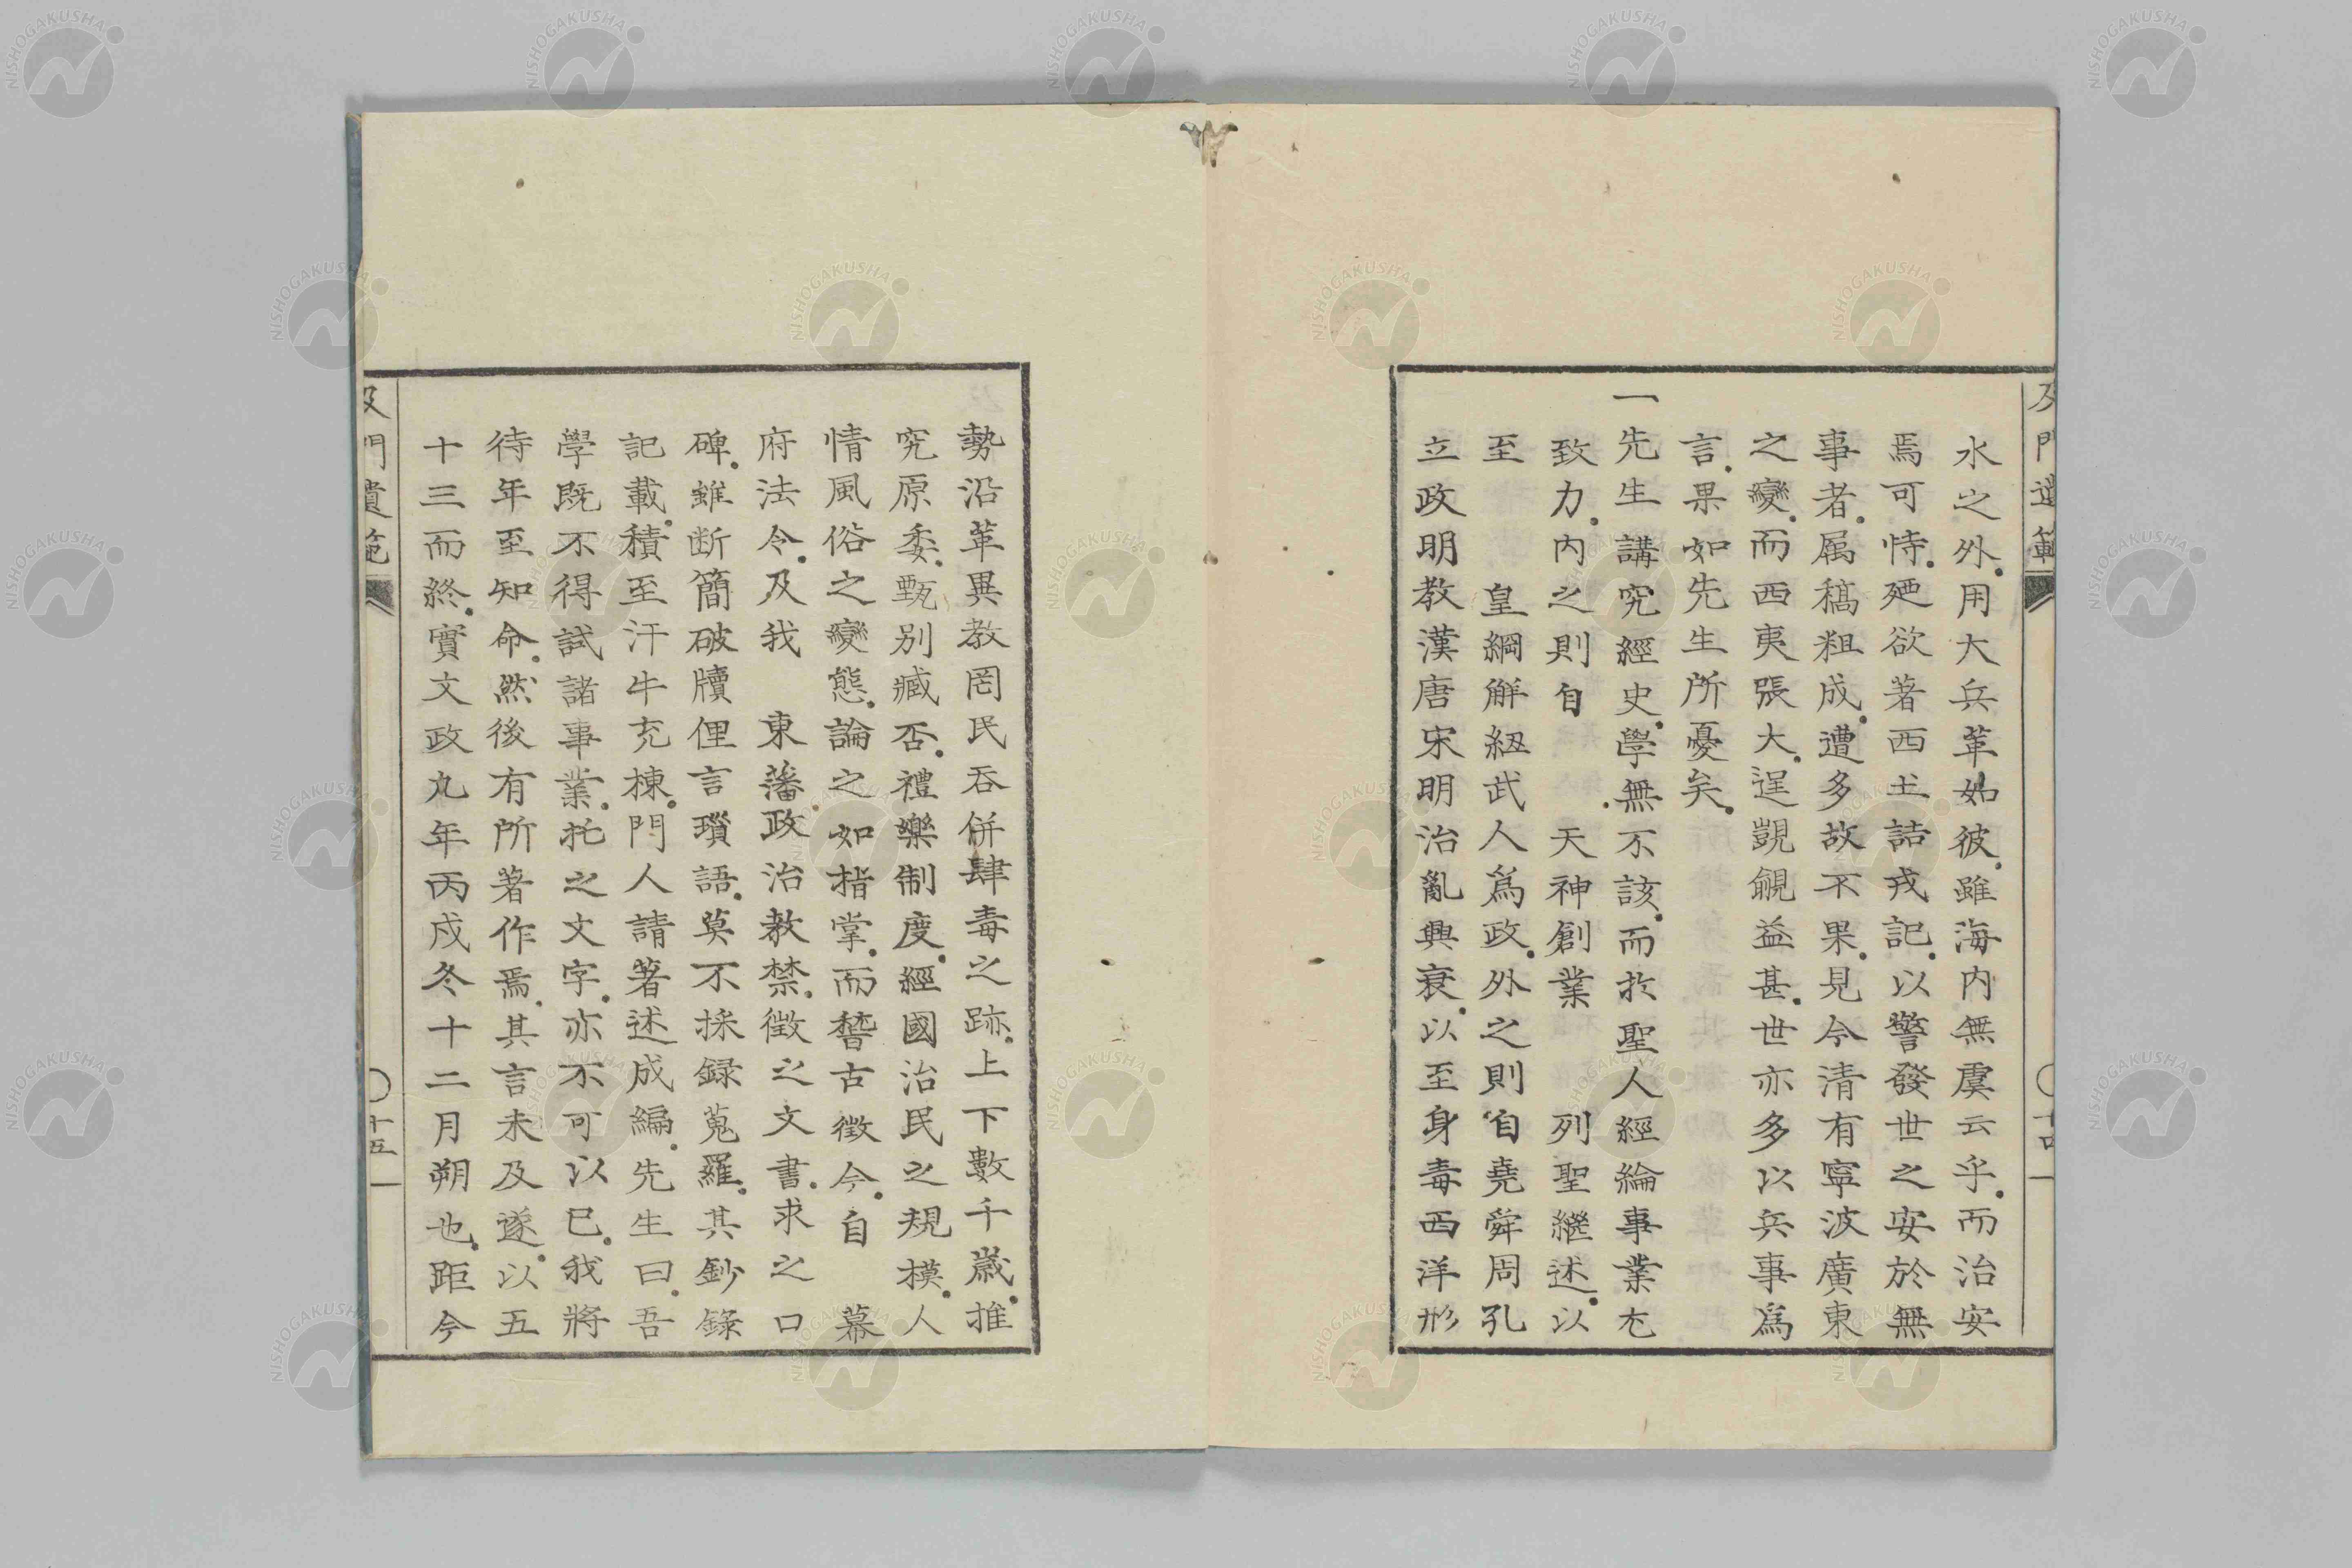 及門遺範
十四
水之外用大兵革如彼雖海内無虞云乎而治安
焉可恃廼欲著西土詰戎記以警發世之安於無
事者属稿粗成遭多故不果見今清有寧波廣東
之變而西夷張大逞覬覦益甚世亦多以兵事為
言果如先生所憂矣
一先生講究經史學無不該而於聖人經綸事業尤
致力内之則自　天神創業　列聖繼述以
至　皇綱解紐武人爲政外之則自堯舜周孔
立政明教漢唐宋明治亂興衰以至身毒西洋形
勢沿革異教罔民吞併肆毒之跡上下數千歲推
究原委甄别臧否禮樂制度經國治民之規模人
情風俗之變態論之如指掌而稽古徴今自　幕
府法令及我　東藩政治教禁徴之文書求之口
碑雖断簡破牘俚言瑣語莫不採録蒐羅其鈔錄
記載積至汗牛充棟門人請著述成編先生曰吾
學既不得試諸事業托之文字亦不可以已我將
待年至知命然後有所著作焉其言未及遂以五
十三而終實文政九年丙戌冬十二月朔也距今
及門遺範
十五
NISHOGAKUSHA